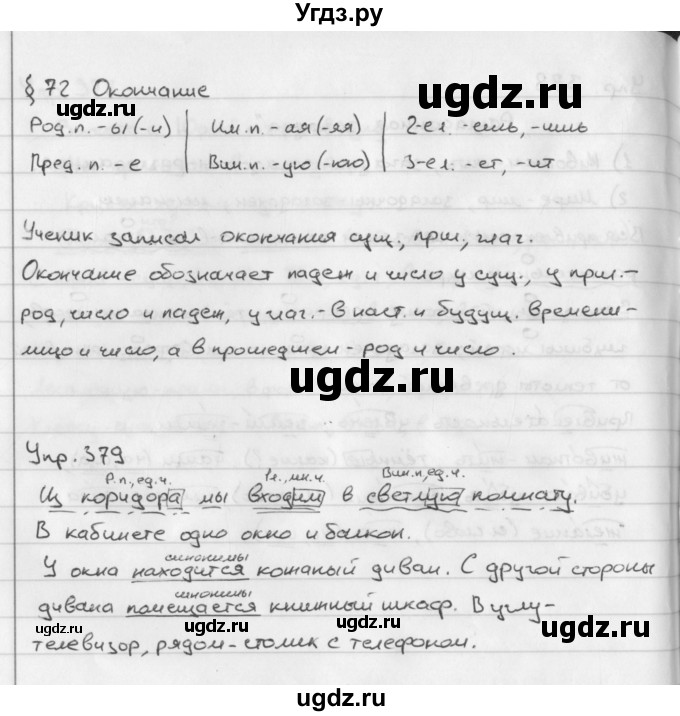 Угдз.ру
§ 72 Окончание
Род.п. -ы (-и) | Им.п. -ая (-яя) | 2-е л. -ешь, -ишь
Пред.п. -е | Вин.п. -ую (-юю) | 3-е л. -ет, -ит
Ученик записал окончания сущ., прил., глаг.
Окончание обозначает падеж и число у сущ., у прил.-
род, число и падеж, у глаг. - в наст. и будущ. времени -
лицо и число, а в прошедшем - род и число.
ugdz.ru
ugdz.ru
Упр. 379
Р.п., ед.ч. 1л., мн.ч. Вин.п., ед.ч.
Из коридора мы входим в светлую комнату.
В кабинете одно окно и балкон.
синонимы
У окна находится кожаный диван. С другой стороны
синонимы
дивана помещается книжный шкаф. В углу -
ugdz.ru
ugdz.ru
ugdz.ru
телевизор, рядом - столик с телефоном.
ugdz.ru